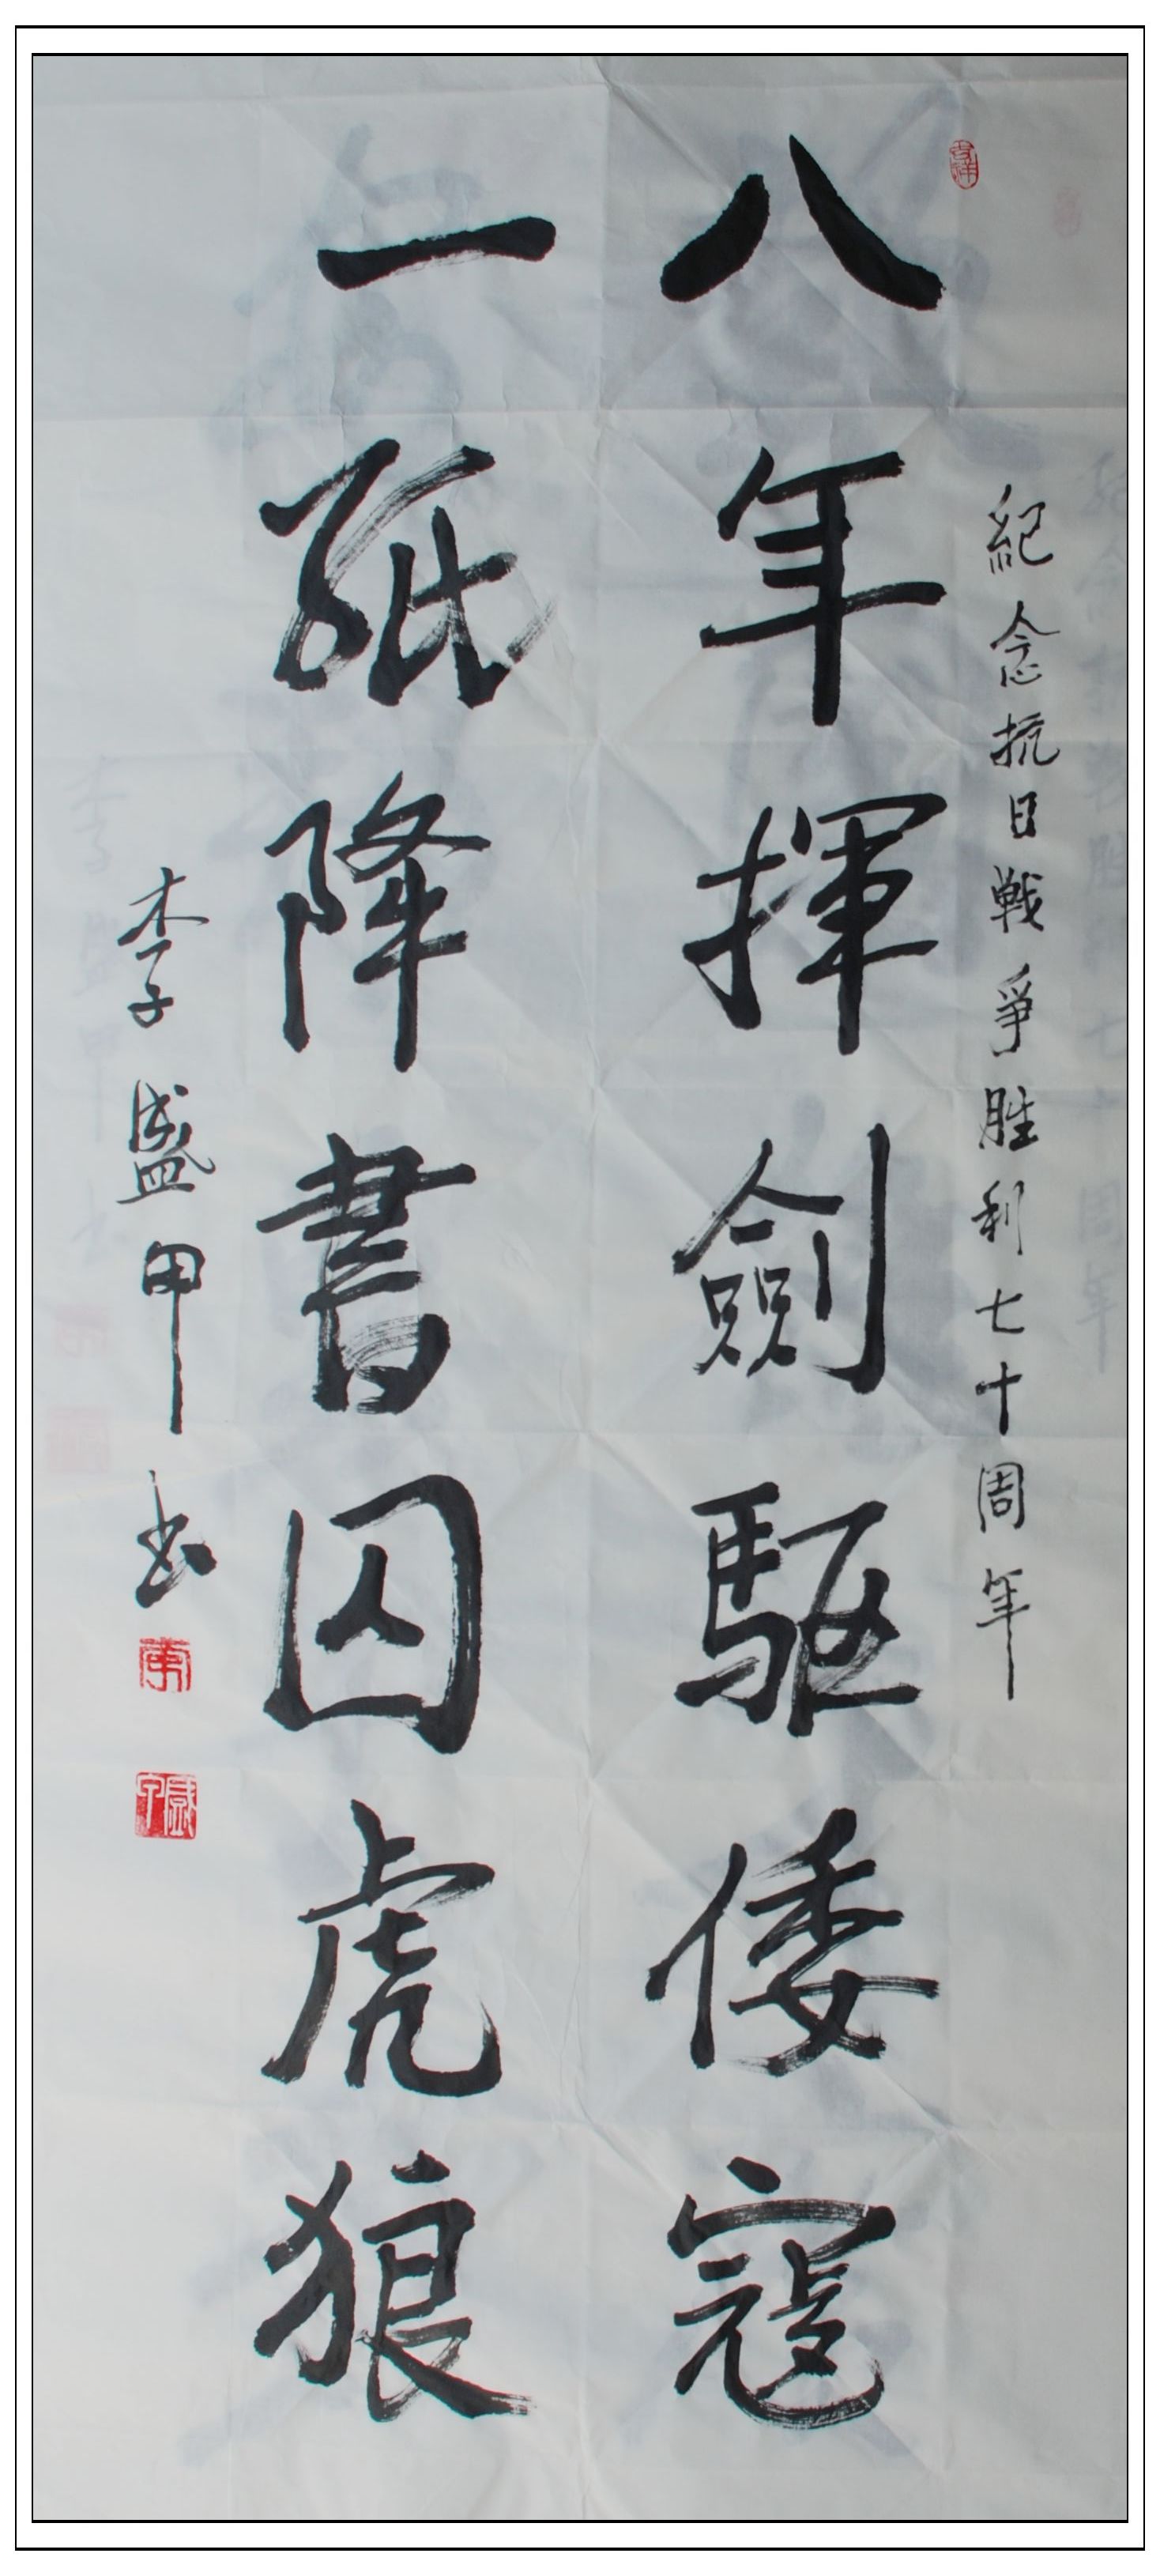 紀念抗日戦爭胜利七十周年
八年揮劍驅倭寇
一紙降書囚虎狼
李盛甲书